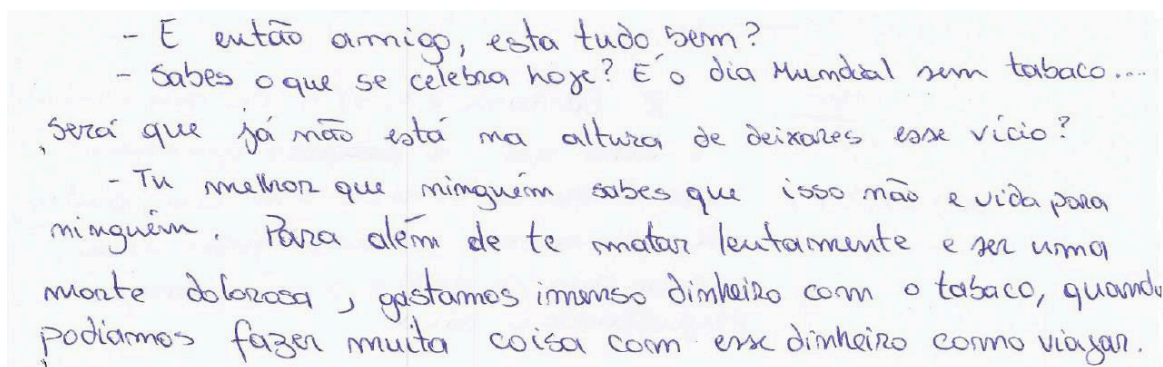 - E então amigo, esta tudo bem?
- Sabes o que se celebra hoje? E o dia Mundial sem tabaco...
será que já não está na altura de deixares esse vício?
- Tu melhor que ninguém sabes que isso não e vida para
ninguém. Para além de te matar lentamente e ser uma
morte dolorosa, gastamos imenso dinheiro com o tabaco, quando
podiamos fazer muita coisa com esse dinheiro como viajar.